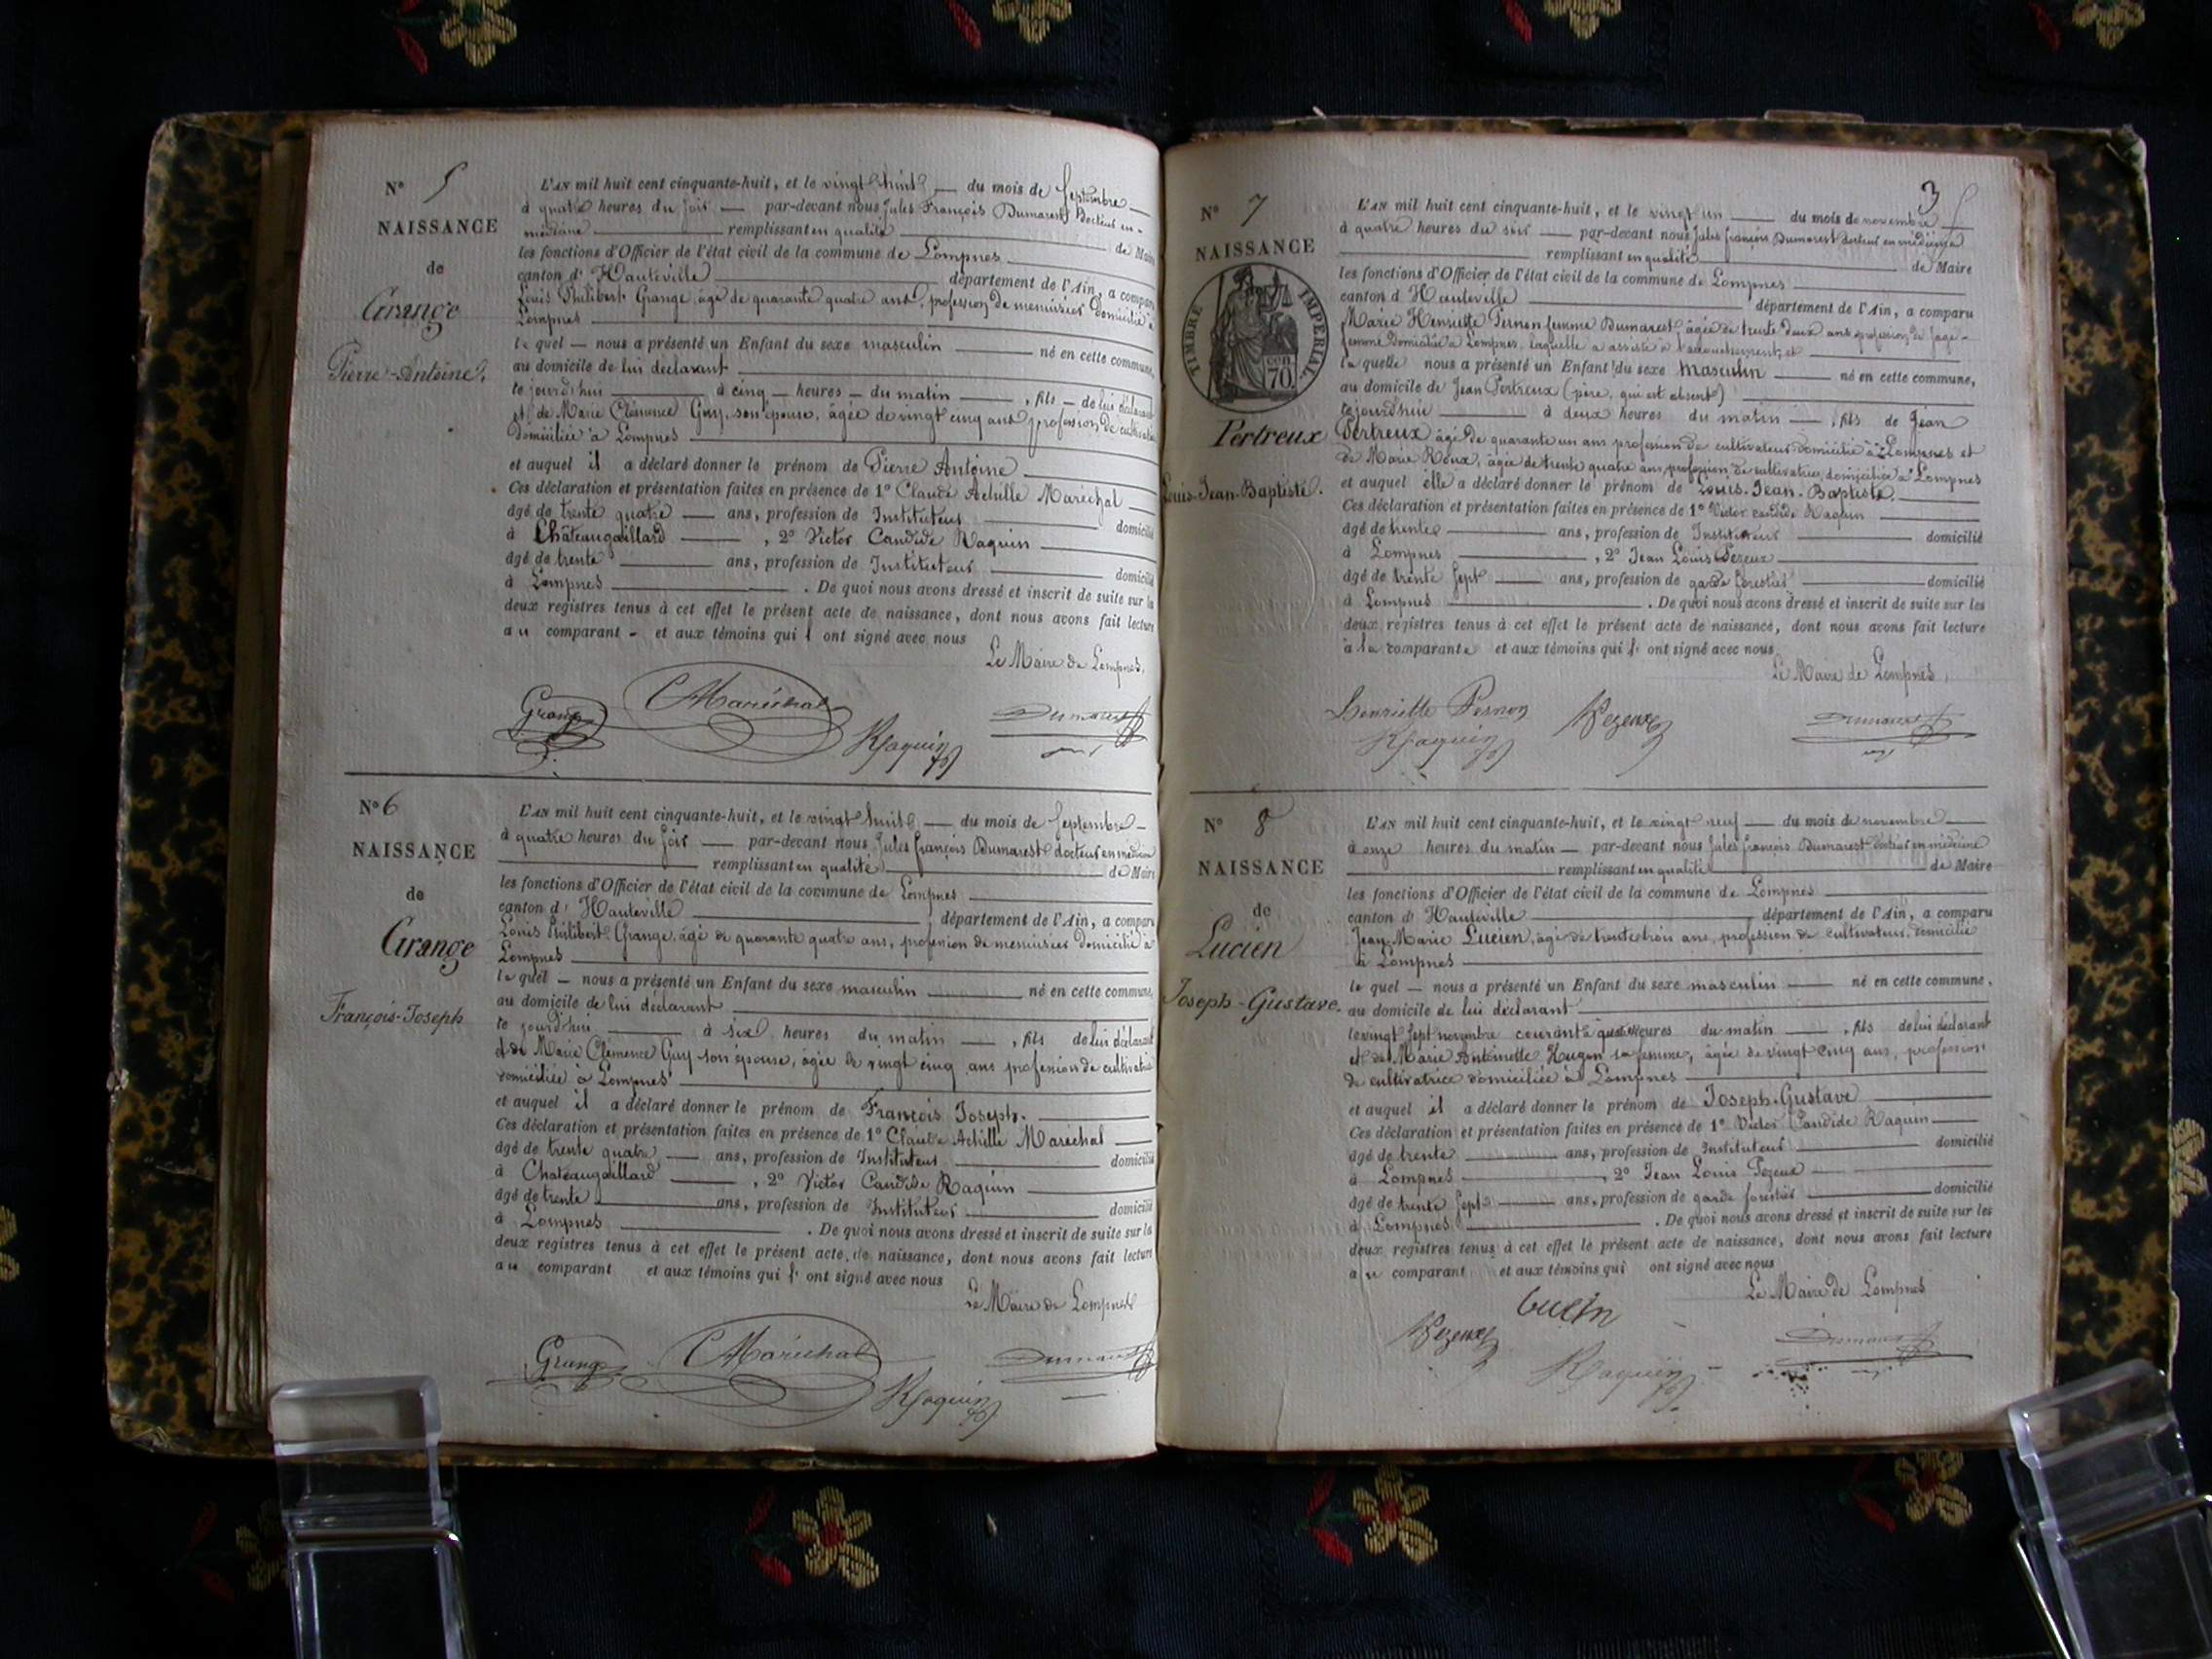 N° 5
NAISSANCE
de
Grange
Pierre-Antoine.
L'AN mil huit cent cinquante-huit, et le vingt huit du mois de Septembre
à quatre heures du soir par-devant nous Jules François Dumarest Docteur en
médecine remplissant en qualité de Maire
les fonctions d'Officier de l'état civil de la commune de Lompnes
canton d'Hauteville département de l'Ain, a comparu
Louis Philibert Grange, âgé de quarante quatre ans, profession de menuisier domicilié à
Lompnes
lequel nous a présenté un Enfant du sexe masculin né en cette commune,
au domicile de lui déclarant
cejourd'hui à cinq heures du matin, fils de lui déclarant
et de Marie Clémence Guy, son épouse, âgée de vingt cinq ans profession de cultivatrice
domiciliée à Lompnes
et auquel il a déclaré donner le prénom de Pierre Antoine
Ces déclaration et présentation faites en présence de 1° Claude Achille Maréchal
âgé de trente quatre ans, profession de Instituteur domicilié
à Châteaugaillard, 2° Victor Candide Raquin
âgé de trente ans, profession de Instituteur domicilié
à Lompnes. De quoi nous avons dressé et inscrit de suite sur les
deux registres tenus à cet effet le présent acte de naissance, dont nous avons fait lecture
au comparant et aux témoins qui l'ont signé avec nous
Le Maire de Lompnes.
Grange Maréchal Raquin Dumarest
N° 6
NAISSANCE
de
Grange
François-Joseph
L'AN mil huit cent cinquante-huit, et le vingt huit du mois de Septembre
à quatre heures du soir par-devant nous Jules François Dumarest docteur en médecine
remplissant en qualité de Maire
les fonctions d'Officier de l'état civil de la commune de Lompnes
canton d'Hauteville département de l'Ain, a comparu
Louis Philibert Grange, âgé de quarante quatre ans, profession de menuisier domicilié à
Lompnes
lequel nous a présenté un Enfant du sexe masculin né en cette commune,
au domicile de lui déclarant
ce jourd'hui à six heures du matin, fils de lui déclarant
et de Marie Clémence Guy son épouse, âgée de vingt cinq ans profession de cultivatrice
domiciliée à Lompnes
et auquel il a déclaré donner le prénom de François Joseph.
Ces déclaration et présentation faites en présence de 1° Claude Achille Maréchal
âgé de trente quatre ans, profession de Instituteur domicilié
à Chateaugaillard, 2° Victor Candide Raquin
âgé de trente ans, profession de Instituteur domicilié
à Lompnes. De quoi nous avons dressé et inscrit de suite sur les
deux registres tenus à cet effet le présent acte de naissance, dont nous avons fait lecture
au comparant et aux témoins qui l'ont signé avec nous
Le Maire de Lompnes
Grange Maréchal Raquin Dumarest
3
N° 7
NAISSANCE
TIMBRE IMPERIAL
cen 70
Pertreux
Louis-Jean-Baptiste.
L'AN mil huit cent cinquante-huit, et le vingt un du mois de novembre
à quatre heures du soir par-devant nous Jules françois Dumarest docteur en médecine
remplissant en qualité de Maire
les fonctions d'Officier de l'état civil de la commune de Lompnes
canton d'Hauteville département de l'Ain, a comparu
Marie Henriette Pernon femme Dumarest, âgée de trente deux ans profession de sage-
femme domiciliée à Lompnes, laquelle a assisté à l'accouchement, et
laquelle nous a présenté un Enfant du sexe masculin né en cette commune,
au domicile de Jean Pertreux (père, qui est absent)
cejourd'hui à deux heures du matin, fils de Jean
Pertreux âgé de quarante un ans profession de cultivateur domicilié à Lompnes et
de Marie Roux, âgée de trente quatre ans, profession de cultivatrice, domiciliée à Lompnes
et auquel elle a déclaré donner le prénom de Louis-Jean-Baptiste.
Ces déclaration et présentation faites en présence de 1° Victor candide Raquin
âgé de trente ans, profession de Instituteur domicilié
à Lompnes, 2° Jean Louis Pezeux
âgé de trente sept ans, profession de garde forestier domicilié
à Lompnes. De quoi nous avons dressé et inscrit de suite sur les
deux registres tenus à cet effet le présent acte de naissance, dont nous avons fait lecture
à la comparante et aux témoins qui l'ont signé avec nous
Le Maire de Lompnes.
Henriette Pernon Pezeux Dumarest
Raquin
N° 8
NAISSANCE
de
Lucien
Joseph-Gustave.
L'AN mil huit cent cinquante-huit, et le vingt neuf du mois de novembre
à onze heures du matin par-devant nous Jules françois Dumarest docteur en médecine
remplissant en qualité de Maire
les fonctions d'Officier de l'état civil de la commune de Lompnes
canton d'Hauteville département de l'Ain, a comparu
Jean Marie Lucien, âgé de trente trois ans, profession de cultivateur, domicilié
à Lompnes
lequel nous a présenté un Enfant du sexe masculin né en cette commune,
au domicile de lui déclarant
le vingt sept novembre courant à quatre heures du matin, fils de lui déclarant
et de Marie Antoinette Hugon sa femme, âgée de vingt cinq ans, profession
de cultivatrice domiciliée à Lompnes
et auquel il a déclaré donner le prénom de Joseph-Gustave
Ces déclaration et présentation faites en présence de 1° Victor Candide Raquin
âgé de trente ans, profession de Instituteur domicilié
à Lompnes, 2° Jean Louis Pezeux
âgé de trente sept ans, profession de garde forestier domicilié
à Lompnes. De quoi nous avons dressé et inscrit de suite sur les
deux registres tenus à cet effet le présent acte de naissance, dont nous avons fait lecture
au comparant et aux témoins qui ont signé avec nous
Le Maire de Lompnes
Pezeux Lucien Raquin Dumarest